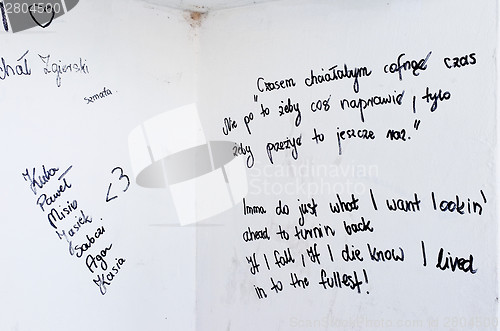 2804500
chał Zgierski
szmata.
Kuba
Paweł
Misio
Jasiek
Sabcu
Aga
Kasia
<3
Czasem chciałabym cofnąć czas
Nie po "to żeby coś naprawić, tylko
żeby przeżyć to jeszcze raz."
Imma do just what I want lookin'
ahead to turnin back
If I fall, If I die know I lived
in to the fullest!
2804500